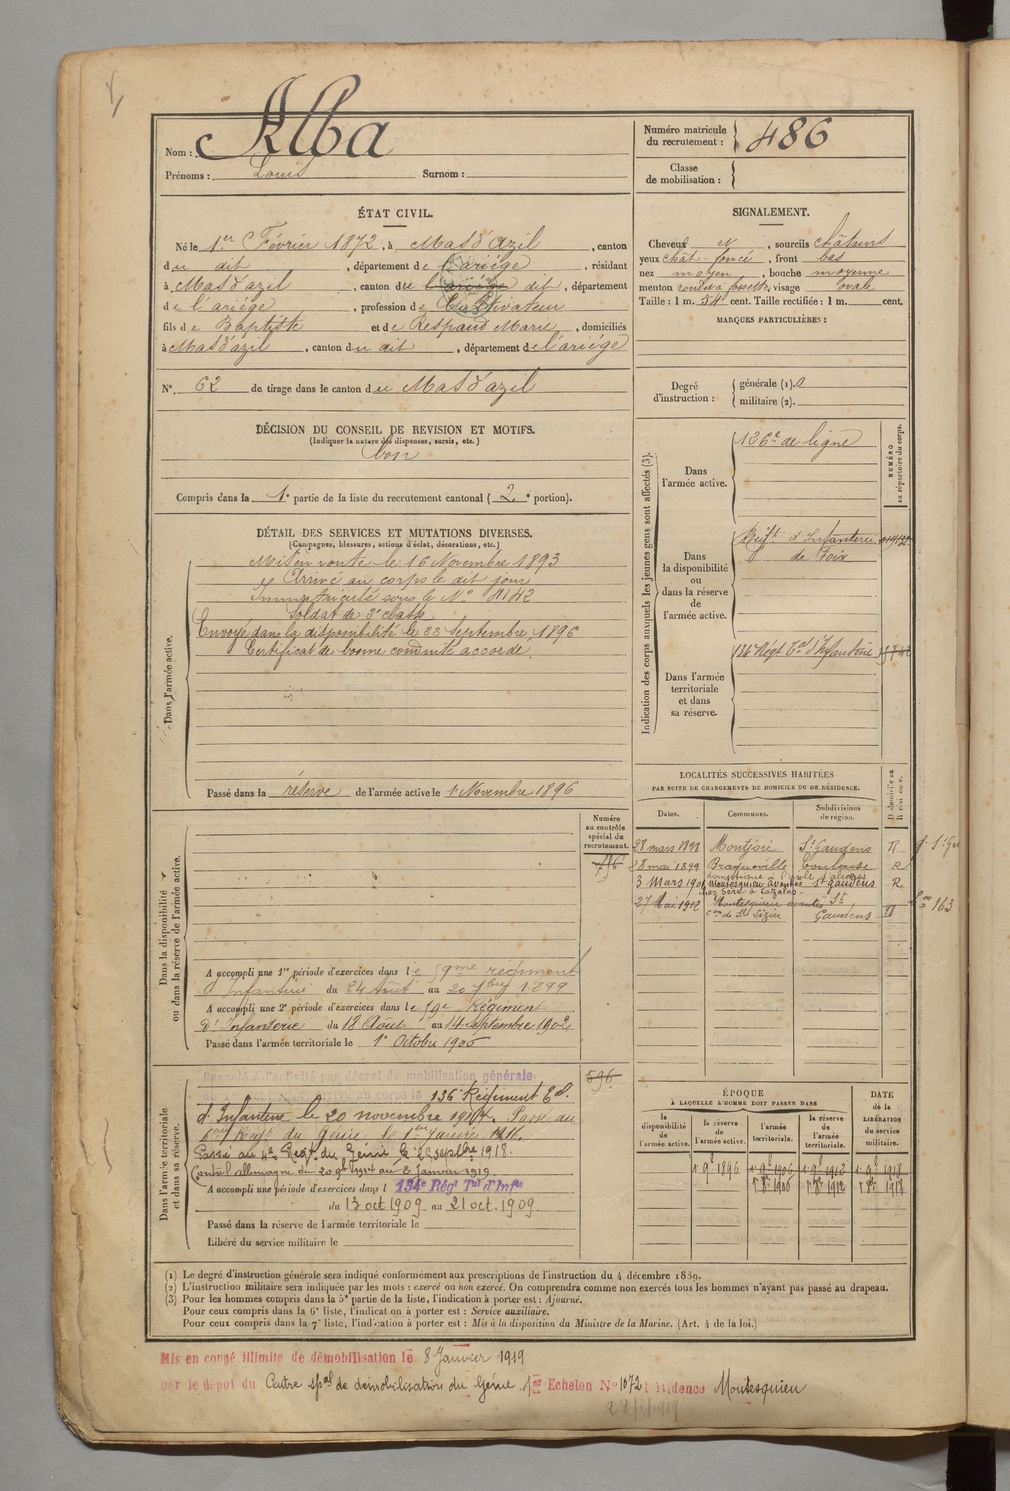 Nom : Alba
Prénoms : Louis Surnom :
Numéro matricule
du recrutement : 486
Classe
de mobilisation :
ÉTAT CIVIL.
Né le 1er Février 1872, à Mas d'Azil, canton
du dit, département de l'ariége, résidant
à Mas d'azil, canton du l'ariége dit, département
de l'ariége, profession de Cultivateur
fils de Baptiste et de Respaud Marie, domiciliés
à Mas d'azil, canton du dit, département de l'ariége
N° 62 de tirage dans le canton du Mas d'azil
DÉCISION DU CONSEIL DE REVISION ET MOTIFS.
(Indiquer la nature des dispenses, sursis, etc.)
bon
Compris dans la 1e partie de la liste du recrutement cantonal (2e portion).
SIGNALEMENT.
Cheveux et, sourcils châtains
yeux chât. foncé, front bas
nez moyen, bouche moyenne
menton rond à fossette, visage ovale
Taille : 1 m. 54 cent. Taille rectifiée : 1 m. cent.
MARQUES PARTICULIÈRES :
Degré
d'instruction :
générale (1). 0
militaire (2).
DÉTAIL DES SERVICES ET MUTATIONS DIVERSES.
(Campagnes, blessures, actions d'éclat, décorations, etc.)
Dans l'armée active.
Mis en route le 16 Novembre 1893
et Arrivé au corps le dit jour
Immatriculé sous le N°
Soldat de 2e classe
Envoyé dans la disponibilité le 22 Septembre 1896
Certificat de bonne conduite accordé
Passé dans la réserve de l'armée active le 1 Novembre 1896
Indication des corps auxquels les jeunes gens sont affectés (3).
NUMÉRO
au répertoire du corps.
Dans
l'armée active.
126e de ligne
Dans
la disponibilité
ou
dans la réserve
de
l'armée active.
Régt d'Infanterie
de Foix
Dans l'armée
territoriale
et dans
sa réserve.
134 Régt Tal d'Infanterie
LOCALITÉS SUCCESSIVES HABITÉES
PAR SUITE DE CHANGEMENTS DE DOMICILE OU DE RÉSIDENCE.
Dates. Communes. Subdivisions
de région. D domicile ou
R résidence.
28 mars 1898 Montjoie St Gaudens R
28 mai 1899 Braqueville Toulouse R
domestique à l'asile d'aliénés
3 Mars 1901 Montesquieu avantès St gaudens R
chez Seré à Cazalas
27 Mai 1912 Montesquieu avantès St
con de St Lizier Gaudens
Dans la disponibilité
ou dans la réserve de l'armée active.
Numéro
au contrôle
spécial du
recrutement.
A accompli une 1re période d'exercices dans le 59me régiment
d'Infanterie du 24 Août au 20 7bre 1899
A accompli une 2e période d'exercices dans le 59e Régiment
D'Infanterie du 18 Août au 14 Septembre 1902
Passé dans l'armée territoriale le 1er Octobre 1906
Dans l'armée territoriale
et dans sa réserve.
596
Rappelé à l'activité par décret de mobilisation générale
136 Régiment Tal
d'Infanterie le 20 novembre 1914. Passé au
du Génie le 1er Janvier
Passé au 4e Regt du Génie le 22 septbre 1918.
Contre l'allemagne du 20 9bre 1914 au 2 Janvier 1919.
A accompli une période d'exercices dans l 134e Régt Tal d'Infie
du 13 oct 1909 au 21 oct. 1909.
Passé dans la réserve de l'armée territoriale le
Libéré du service militaire le
ÉPOQUE
À LAQUELLE L'HOMME DOIT PASSER DANS
DATE
de la
LIBÉRATION
du service
militaire.
la
disponibilité
de
l'armée active.
la réserve
de
l'armée active.
l'armée
territoriale.
la réserve
de
l'armée
territoriale.
1 9bre 1896 1 9bre 1906 1 9bre 1912 1 9bre 1918
1 8bre 1906 1 8bre 1912 1 8bre 1918
(1) Le degré d'instruction générale sera indiqué conformément aux prescriptions de l'instruction du 4 décembre 1889.
(2) L'instruction militaire sera indiquée par les mots : exercé ou non exercé. On comprendra comme non exercés tous les hommes n'ayant pas passé au drapeau.
(3) Pour les hommes compris dans la 5e partie de la liste, l'indication à porter est : Ajourné.
Pour ceux compris dans la 6e liste, l'indication à porter est : Service auxiliaire.
Pour ceux compris dans la 7e liste, l'indication à porter est : Mis à la disposition du Ministre de la Marine. (Art. 4 de la loi.)
Mis en congé illimité de démobilisation le 8 Janvier 1919
par le dépôt du Centre spal de démobilisation du Génie 1er Echelon N° 1072 résidence Montesquieu